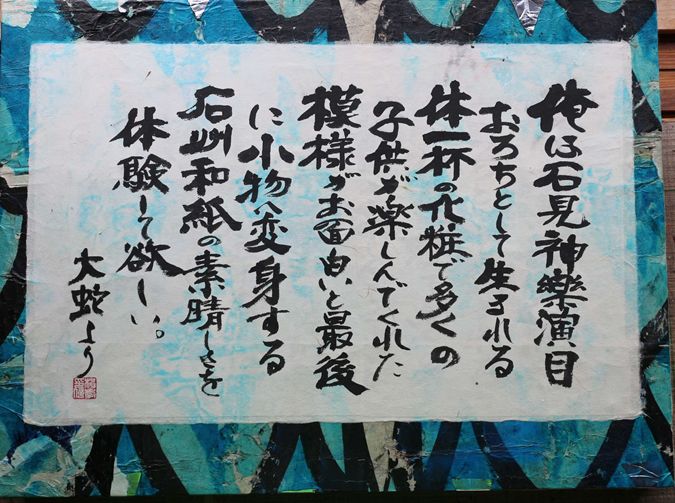 俺は石見神樂演目
おろちとして生まれる
体一杯の化粧で多くの
子供が楽しんでくれた
模様がお面白いと最後
に小物へ変身する
石州和紙の素晴しさを
体験して欲しい。
大蛇より